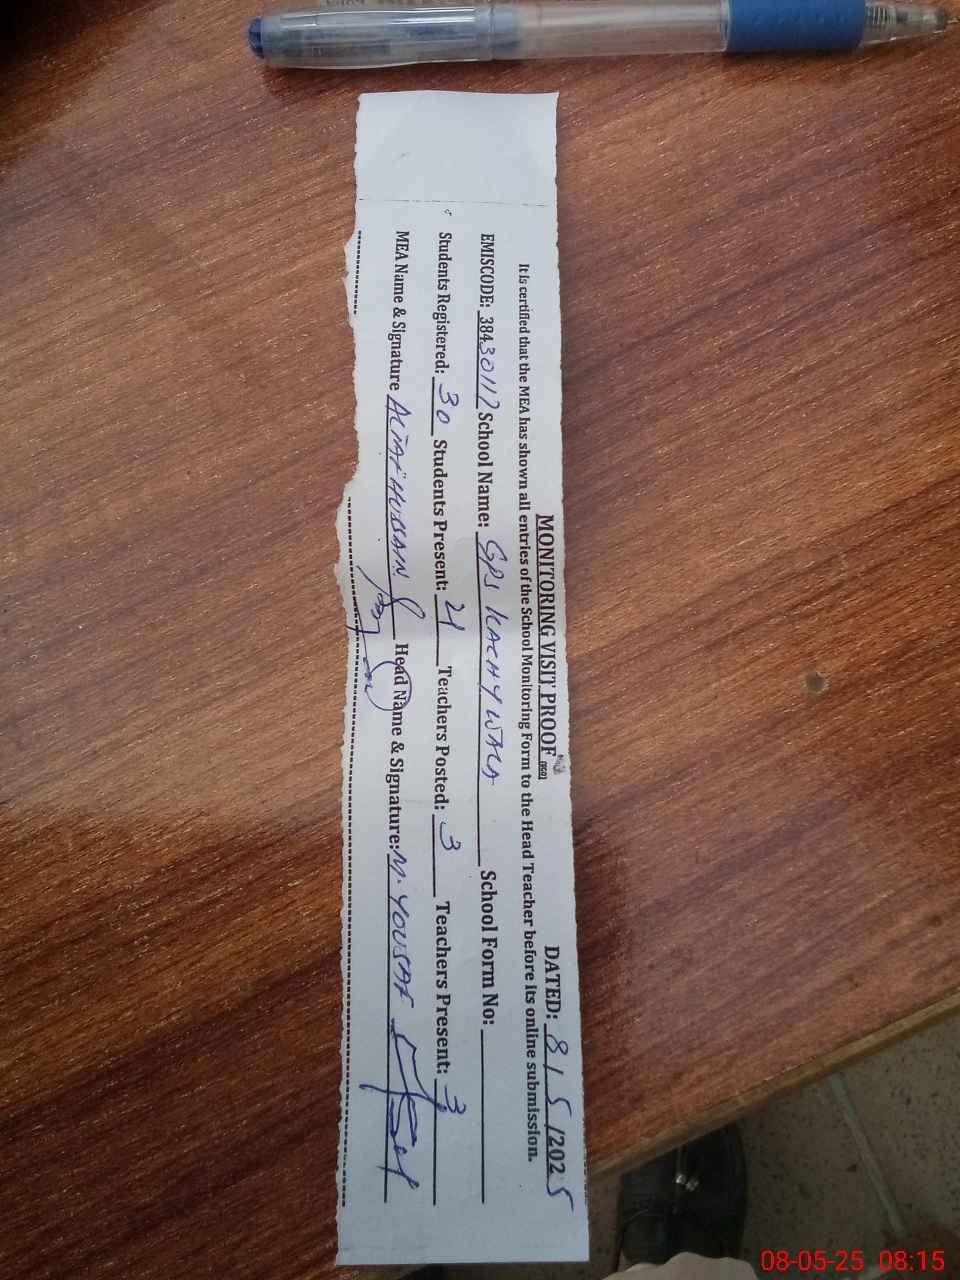 MONITORING VISIT PROOF DATED: 8/5/2025
It is certified that the MEA has shown all entries of the School Monitoring Form to the Head Teacher before its online submission.
EMISCODE: 38430112 School Name: GPS KACHY WALA School Form No:
Students Registered: 30 Students Present: 21 Teachers Posted: 3 Teachers Present: 3
MEA Name & Signature ALTAF HUSSAIN Head Name & Signature: M. YOUSAF
08-05-25 08:15